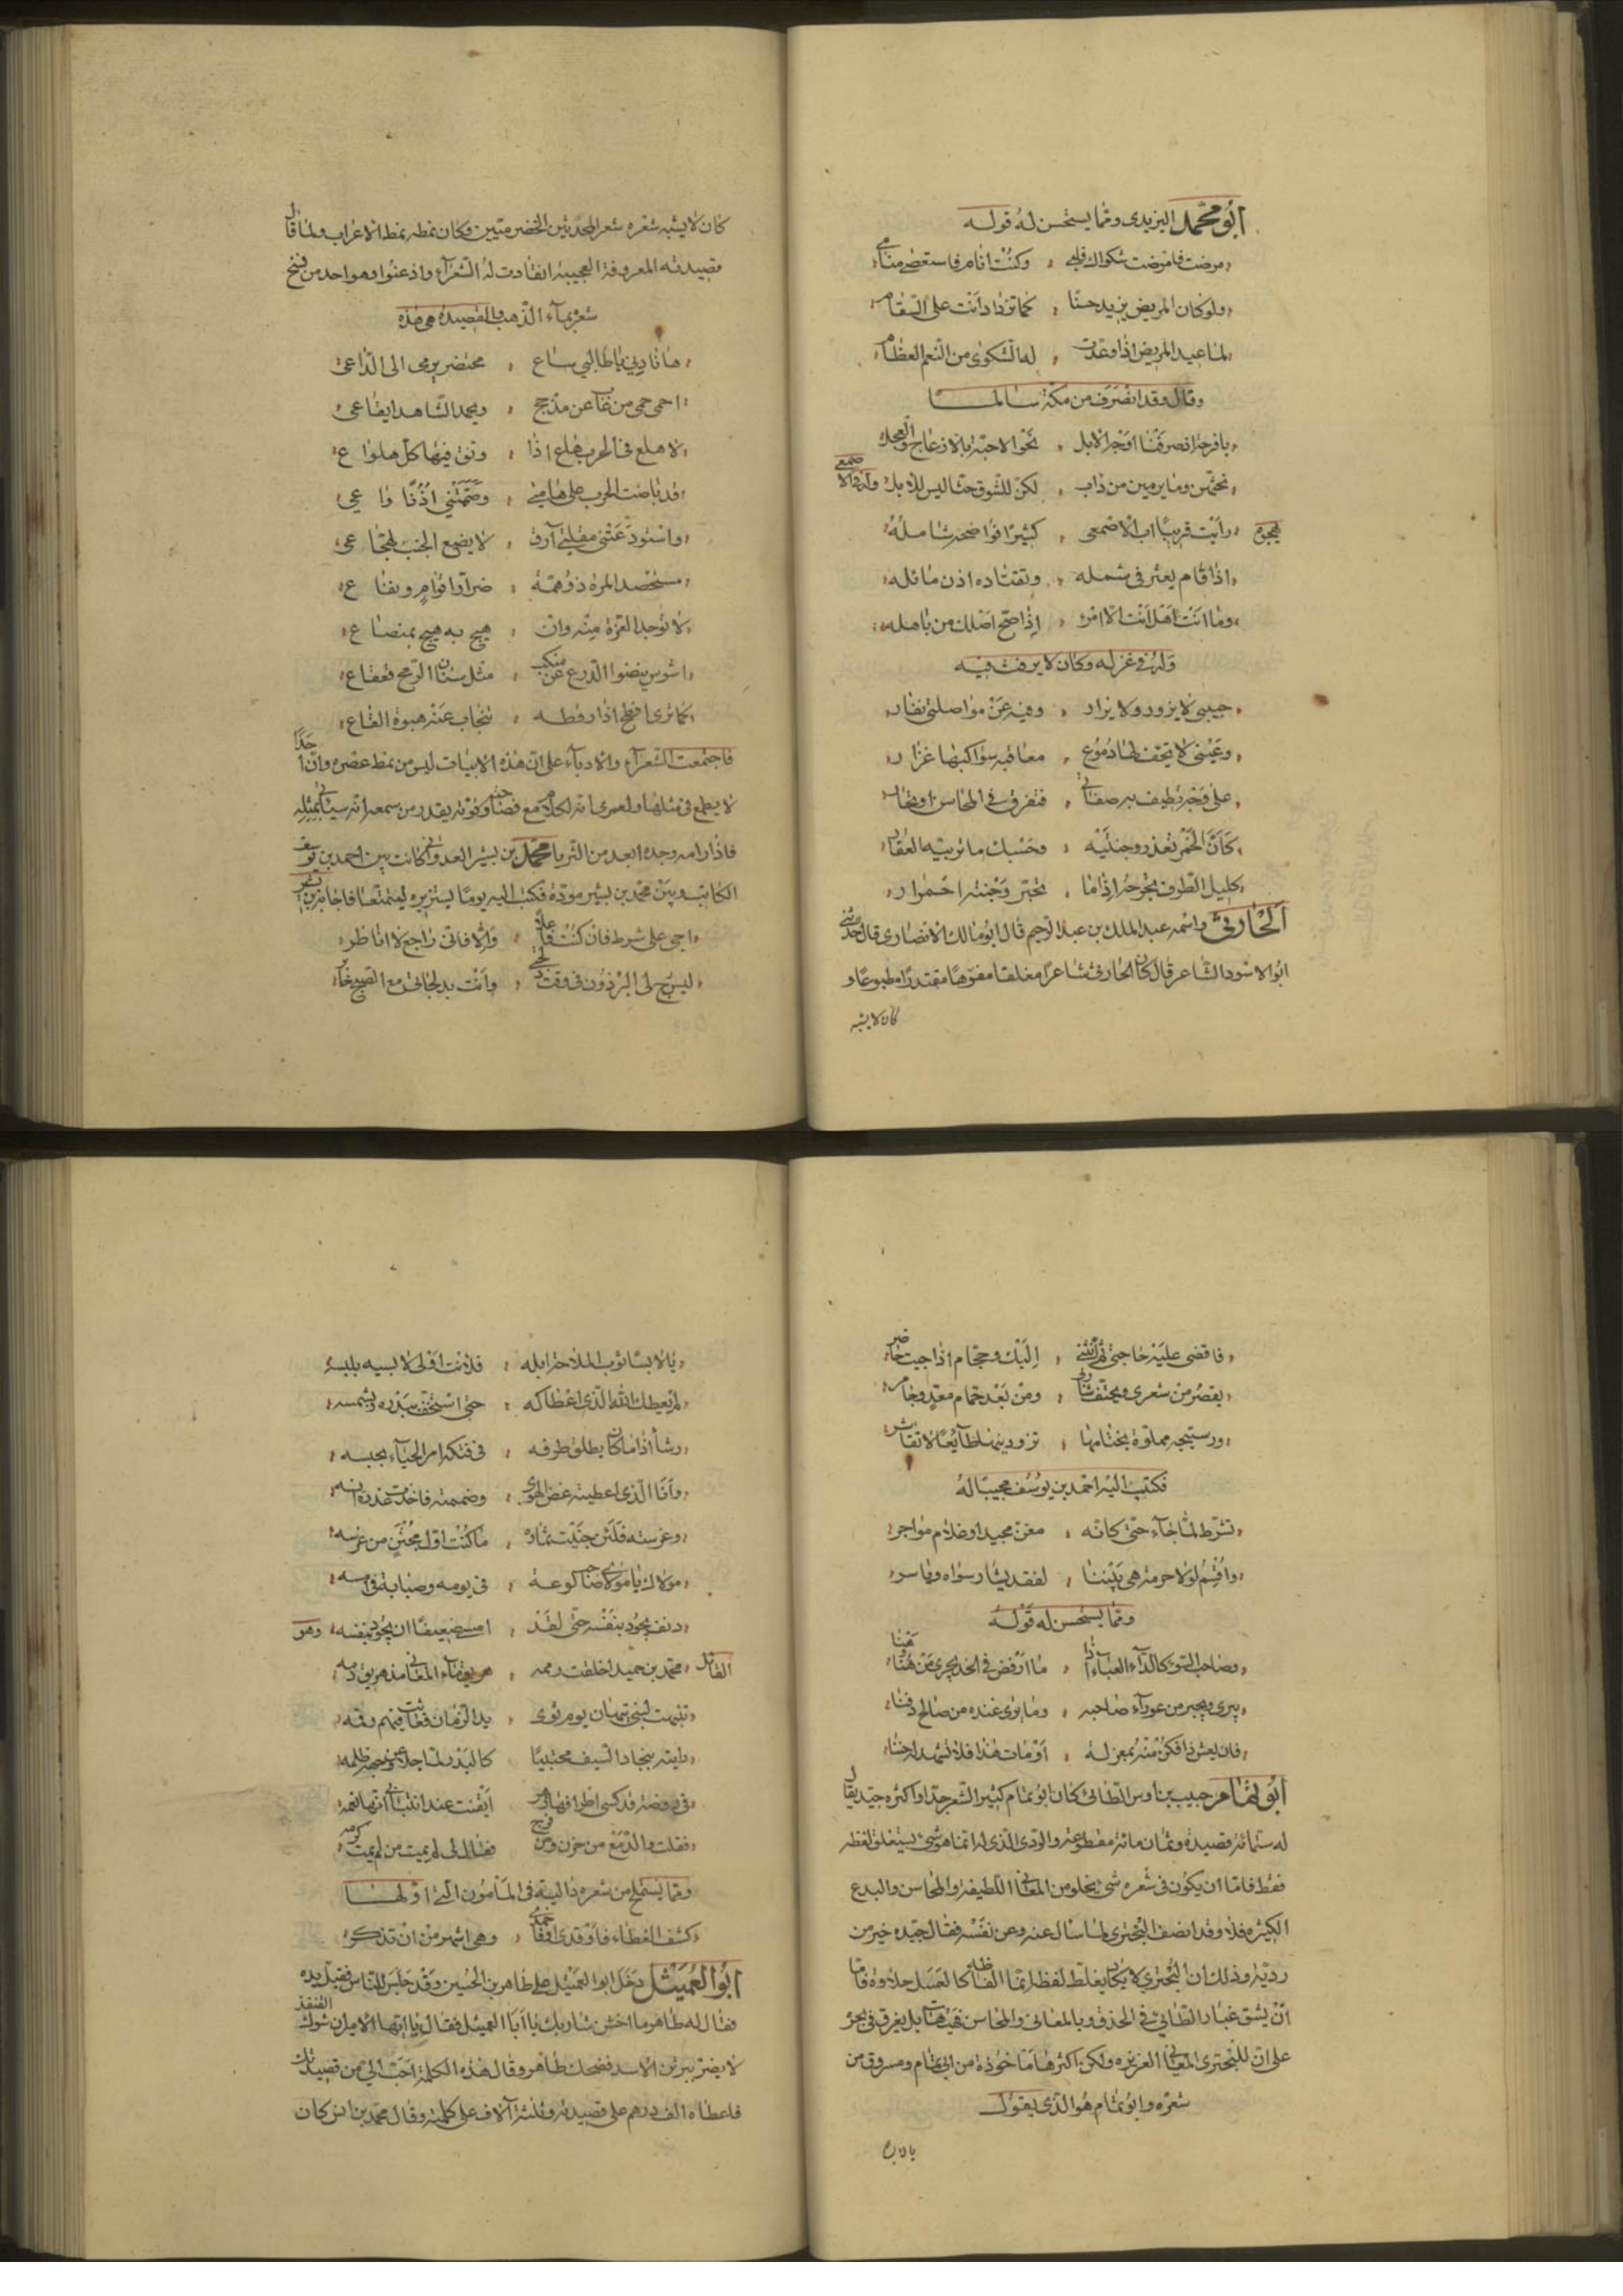 ابو محمد اليزيدى ومما يستحسن له قوله
مرضت فامرضت شكواك قلبى وكنت انام فاستعصى منامى
ولو كان المريض يزيد حسنا كما تزداد انت على السقام
لما عيد المريض اذا وعدت له الشكوى من النعم العظام
وقال وقد انصرف من مكة سالما
يا فرحتا نصرفنا اوجه الابل نحو الاحبة بالازعاج والعجل
نحثهن وما يرمين من ذاب لكن للشوق حثا ليس للابل وله فى الاصمعى
يهجوه رايت قريبا اب الاصمعى كثيرا فواضحه شامله
اذا قام يعثر فى شمله وتقتاده اذن مائله
وما انت هل انت الا امرؤ اذا صح اصلك من باهله
وله فى غزله وكان لا يرفث فيه
حبيبى لا يزور ولا يزار وفيه عن مواصلتى نفار
وعينى لا تجف لها دموع معاقبه سواكبها غزار
على وجه تطيف به صفاتى فتغرق فى المحاسن او تحار
كان الخمر تعذر وجنتيه وحسبك ما تربيه العقار
كليل الطرف يجرحه اذا ما تحير وجنته احمرار
الحارثى واسمه عبد الملك بن عبد الرحيم قال ابو مالك الانصارى قال حدثنى
ابو الاسود الشاعر قال كان الحارثى شاعرا مغلقا مفوها مقتدرا مطبوعا و
كان لا يشبه
كان لا يشبه شعره شعر المحدثين الحضرميين وكان نمطه نمط الاعراب ولما قال
قصيدته المعروفة العجيبة انقادت له الشعرآء واذعنوا وهو احد من نسخ
شعره بمآء الذهب والقصيدة هى هذه
ها نا ديى يا طالبى ساع محتضر يرمى الى الداعى
احمى حمى من غاب عن مذحج ويحمد الشاهد ايقاعى
لا هلع فى الحرب هلع اذا وتق فيها كل هلواع
قد باضت الحرب على هامتى وصممتنى اذنا واعى
واستودعتنى مقلتى آرق لا يضع الجنب لتهجاعى
مستحصد المرة ذو همة ضرار اقوام ونفاع
لا توجد الغرة منه وان هيج به هيج بمنصاع
اشوس ينضوا الدرع عن منكب مثل سنان الرمح قعقاع
كما ترى افطح اذا رقطه تنجاب عنه هبوة القاع
فاجتمعت الشعرآء والادبآء على ان هذه الابيات ليس من نمط عصره وان احدا
لا يطمع فى مثلها ولعمرى انه لكلام مع فصاحته وقوته يقدر من سمعه انه سياتى بمثله
فاذا رامه وجده ابعد من الثريا محمد بن بشير العدوانى كانت بين احمد بن يوسف
الكاتب وبين محمد بن بشير مودة فكتب اليه يوما يستزيره ليتمتعا فاجابه ابن بشير
اجى على شرط فان كنت فاعلا والا فانى راجع لا اناظر
ليسرج لى البرذون فى وقت دلجتى وانت بدلجاتى مع الصبح خابر
فاقض عليه حاجتى ثم انثنى اليك وحجام اذا جيت حاضر
يقصر من شعرى ويحتف شاربى ومن بعد حمام معد وجامر
ودستيجه مملوة بختامها تزودينها طائعا لا تعاسر
فكتب اليه احمد بن يوسف مجيبا له
تشرط لما جآء حتى كانه مغن مجيد او غلام مواجر
واقسم لولا حرمة هى بيننا لفقد بشار سواه وياسر
ومما يستحسن له قوله
وصاحب السوء كالدآء العيآء اذا ما ارفض فى الخد يجرى من هنا وهنا
يبرى ويخبر من عورآء صاحبه وما يوى عنده من صالح دفنا
فان يعش ذا فكن منه بمعزلة او مات هذا فلا تشهد له جننا
ابو تمام حبيب بن اوس الطائى كان ابو تمام كثير الشعر جدا واكثره جيد يقال
له ستمائة قصيدة وثمان مائة مقطوعة والردى الذى له انما هو شى يستغلق لفظه
فقط فاما ان يكون فى شعره شى يخلو من المعانى اللطيفة والمحاسن والبدع
الكثيرة فلا وقد انصف البحترى لما سال عنه وعن نفسه فقال جيده خير من
رديه وذلك ان البحترى لا يكاد يغلظ لفظه انما الفاظه كالعسل حلاوة فاما
ان يشق غبار الطائى فى الحذق وبالمعانى والمحاسن فهيهات بل يغرق فى بحره
على ان للبحترى المعانى الغزيره ولكن اكثرها ماخوذة من ابى تمام ومسروق من
شعره وابو تمام هو الذى يقول
يا لابسا
يا لابسا ثوب الملاحة ابله فلانت اولى لابسيه بلبسه
لم يعطك الله الذى اعطاكه حتى استخف ببدره وبشمسه
رشأ اذا ما كان يطلق طرفه فى فتكه امر الحيآء بحبسه
وانا الذى اعطيته غض الهوى وضممته فاخذت عذرة انسه
وغرسته فلئن جنيت ثماره ما كنت اول مجتن من غرسه
مولاك يا مولاى صاحب لوعة فى يومه وصبابة فى امسه
دنف يجود بنفسه حتى لقد امسى ضعيفا ان يجود بنفسه وهو
القائل محمد بن حميد اخلقت رممه هريق مآء المعانى مذ هريق دمه
تنبهت لبنى نبهان يوم ثوى يد الزمان فعاثت فيهم وفمه
رايته بنجاد السيف محتبيا كالبدر لما جلا عن وجهه ظلمه
فى روضة قد كسى اطرافها زهر ايقنت عند انتباهى انها نعمه
فقلت والدمع من حزن ومن فرح فقال لى لم يمت من لم يمت كرمه
ومما يستملح من شعره داليته فى المامون التى اولها
كشف الغطاء فاوقدى او اخمدى وهى اشهر من ان تذكر
ابو العميثل دخل ابو العميثل على طاهر بن الحسين وقد جلس للناس فقبل يده
فقال له طاهر ما اخشن شاربك يا ابا العميثل فقال يا ايها الامير ان شوك القنفذ
لا يضر ببرثن الاسد فضحك طاهر وقال هذه الكلمة احب الى من قصيدتك
فاعطاه الف درهم على قصيدته وثلثة آلاف على كلمته وقال محمد بن انس كان